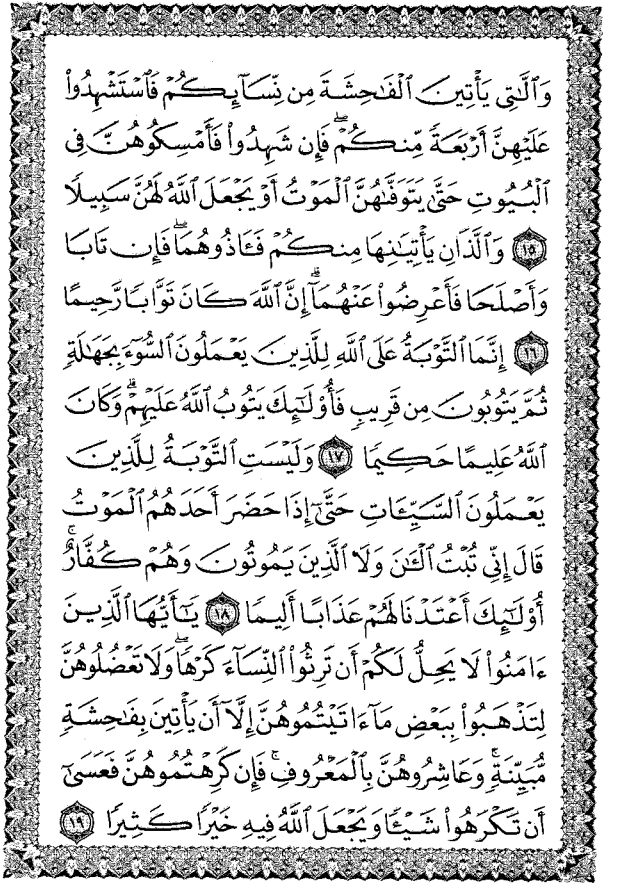 وَٱلَّـٰتِى يَأْتِينَ ٱلْفَـٰحِشَةَ مِن نِّسَآئِكُمْ فَٱسْتَشْهِدُوا۟
عَلَيْهِنَّ أَرْبَعَةً مِّنكُمْ ۖ فَإِن شَهِدُوا۟ فَأَمْسِكُوهُنَّ فِى
ٱلْبُيُوتِ حَتَّىٰ يَتَوَفَّىٰهُنَّ ٱلْمَوْتُ أَوْ يَجْعَلَ ٱللَّهُ لَهُنَّ سَبِيلًا
١٥ وَٱلَّذَانِ يَأْتِيَـٰنِهَا مِنكُمْ فَـَٔاذُوهُمَا ۖ فَإِن تَابَا
وَأَصْلَحَا فَأَعْرِضُوا۟ عَنْهُمَآ ۗ إِنَّ ٱللَّهَ كَانَ تَوَّابًا رَّحِيمًا
١٦ إِنَّمَا ٱلتَّوْبَةُ عَلَى ٱللَّهِ لِلَّذِينَ يَعْمَلُونَ ٱلسُّوٓءَ بِجَهَـٰلَةٍ
ثُمَّ يَتُوبُونَ مِن قَرِيبٍ فَأُو۟لَـٰٓئِكَ يَتُوبُ ٱللَّهُ عَلَيْهِمْ ۗ وَكَانَ
ٱللَّهُ عَلِيمًا حَكِيمًا ١٧ وَلَيْسَتِ ٱلتَّوْبَةُ لِلَّذِينَ
يَعْمَلُونَ ٱلسَّيِّـَٔاتِ حَتَّىٰٓ إِذَا حَضَرَ أَحَدَهُمُ ٱلْمَوْتُ
قَالَ إِنِّى تُبْتُ ٱلْـَٔـٰنَ وَلَا ٱلَّذِينَ يَمُوتُونَ وَهُمْ كُفَّارٌ ۚ
أُو۟لَـٰٓئِكَ أَعْتَدْنَا لَهُمْ عَذَابًا أَلِيمًا ١٨ يَـٰٓأَيُّهَا ٱلَّذِينَ
ءَامَنُوا۟ لَا يَحِلُّ لَكُمْ أَن تَرِثُوا۟ ٱلنِّسَآءَ كَرْهًا ۖ وَلَا تَعْضُلُوهُنَّ
لِتَذْهَبُوا۟ بِبَعْضِ مَآ ءَاتَيْتُمُوهُنَّ إِلَّآ أَن يَأْتِينَ بِفَـٰحِشَةٍ
مُّبَيِّنَةٍ ۚ وَعَاشِرُوهُنَّ بِٱلْمَعْرُوفِ ۚ فَإِن كَرِهْتُمُوهُنَّ فَعَسَىٰٓ
أَن تَكْرَهُوا۟ شَيْـًٔا وَيَجْعَلَ ٱللَّهُ فِيهِ خَيْرًا كَثِيرًا ١٩